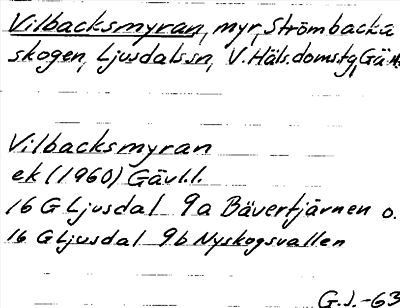 Vilbacksmyran, myr, Strömbacka
skogen, Ljusdals sn, V. Häls. domstg, Gäv.
Vilbacksmyran
ek (1960) Gävl.l.
16 G Ljusdal 9a Bävertjärnen o.
16 G Ljusdal 9b Nyskogsvallen
G.J.-63